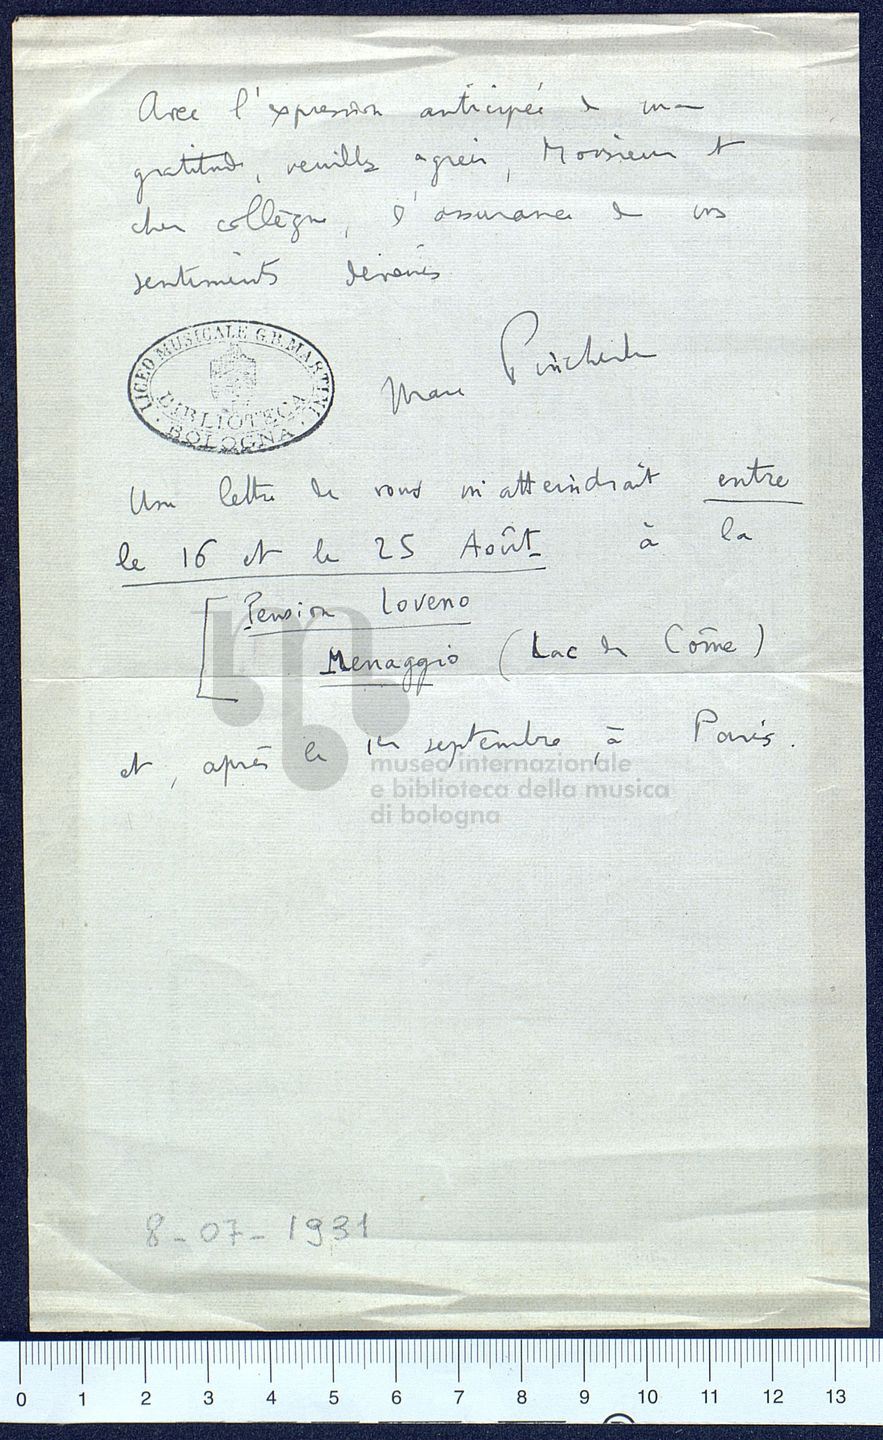 Avec l'expression anticipée de ma
gratitude, veuillez agréer, Monsieur et
cher collègue, l'assurance de mes
sentiments dévoués
Marc Pincherle
LICEO MUSICALE G.B. MARTINI
BIBLIOTECA
BOLOGNA
Une lettre de vous m'atteindrait entre
le 16 et le 25 Août à la
Pension Loveno
Menaggio (Lac de Côme)
et, après le 1er septembre, à Paris.
museo internazionale
e biblioteca della musica
di bologna
8-07-1931
0 1 2 3 4 5 6 7 8 9 10 11 12 13